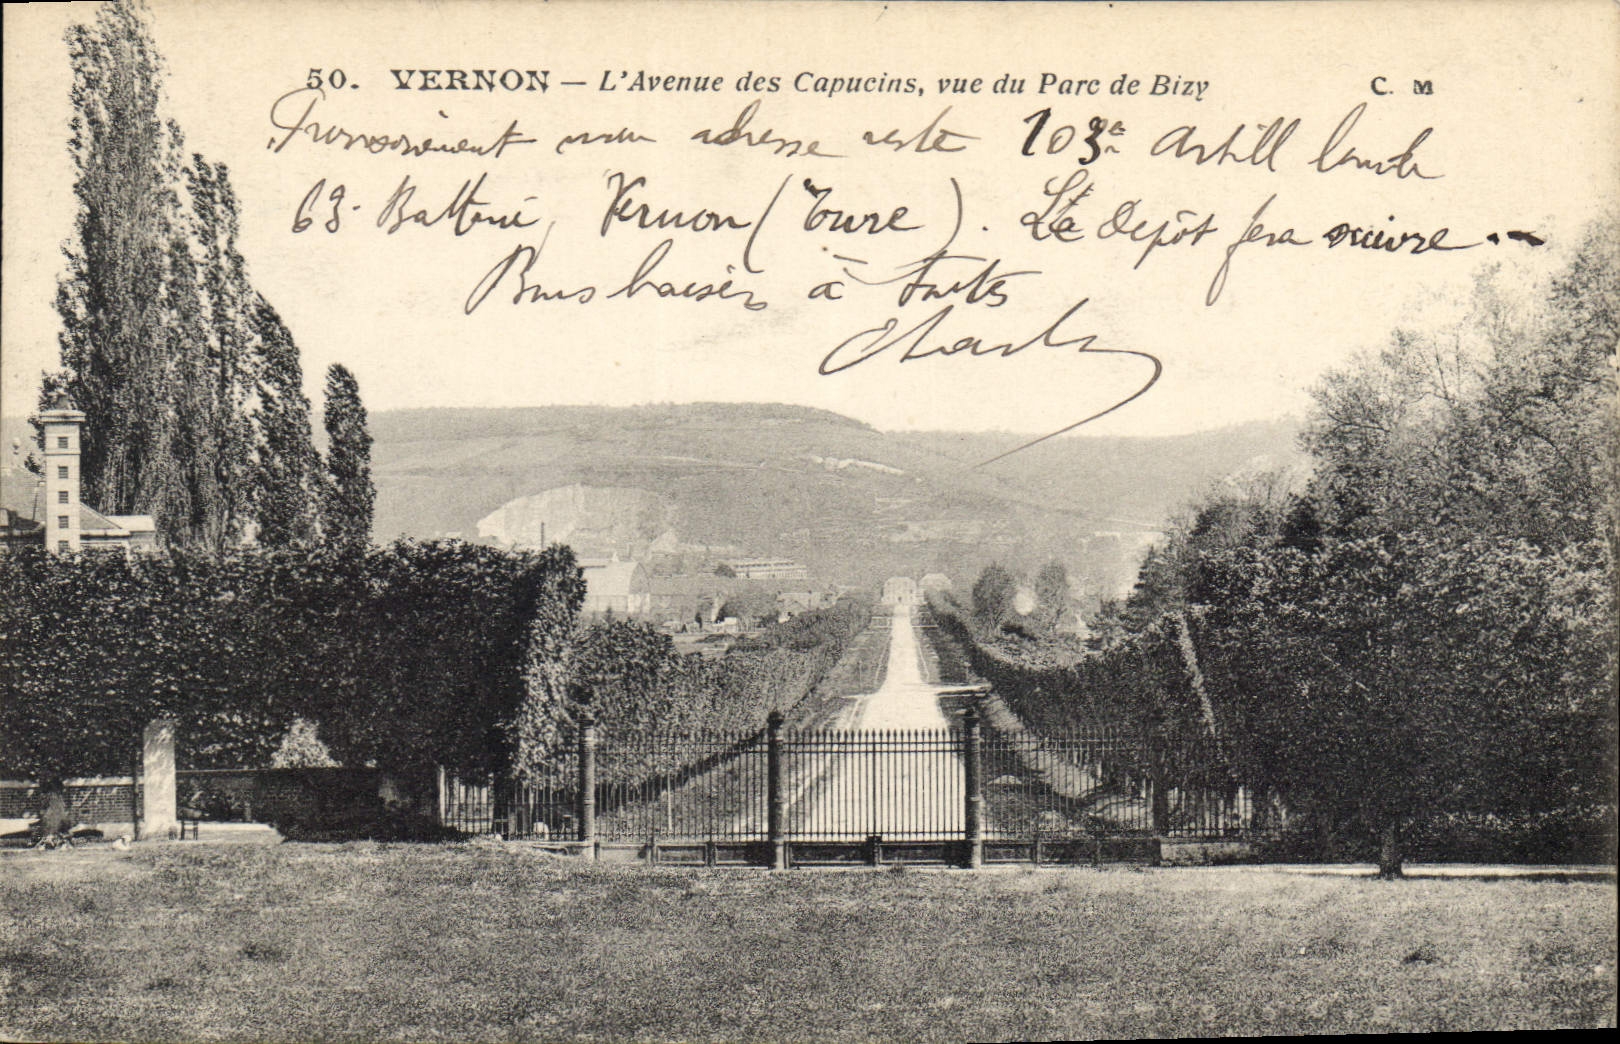 50. VERNON — L'Avenue des Capucins, vue du Parc de Bizy C. M
Provisoirement mon adresse reste 103e Artill lourde
63. Batterie, Vernon (Eure). Le Dépôt fera suivre --
Bons baisers à toutes
Charles